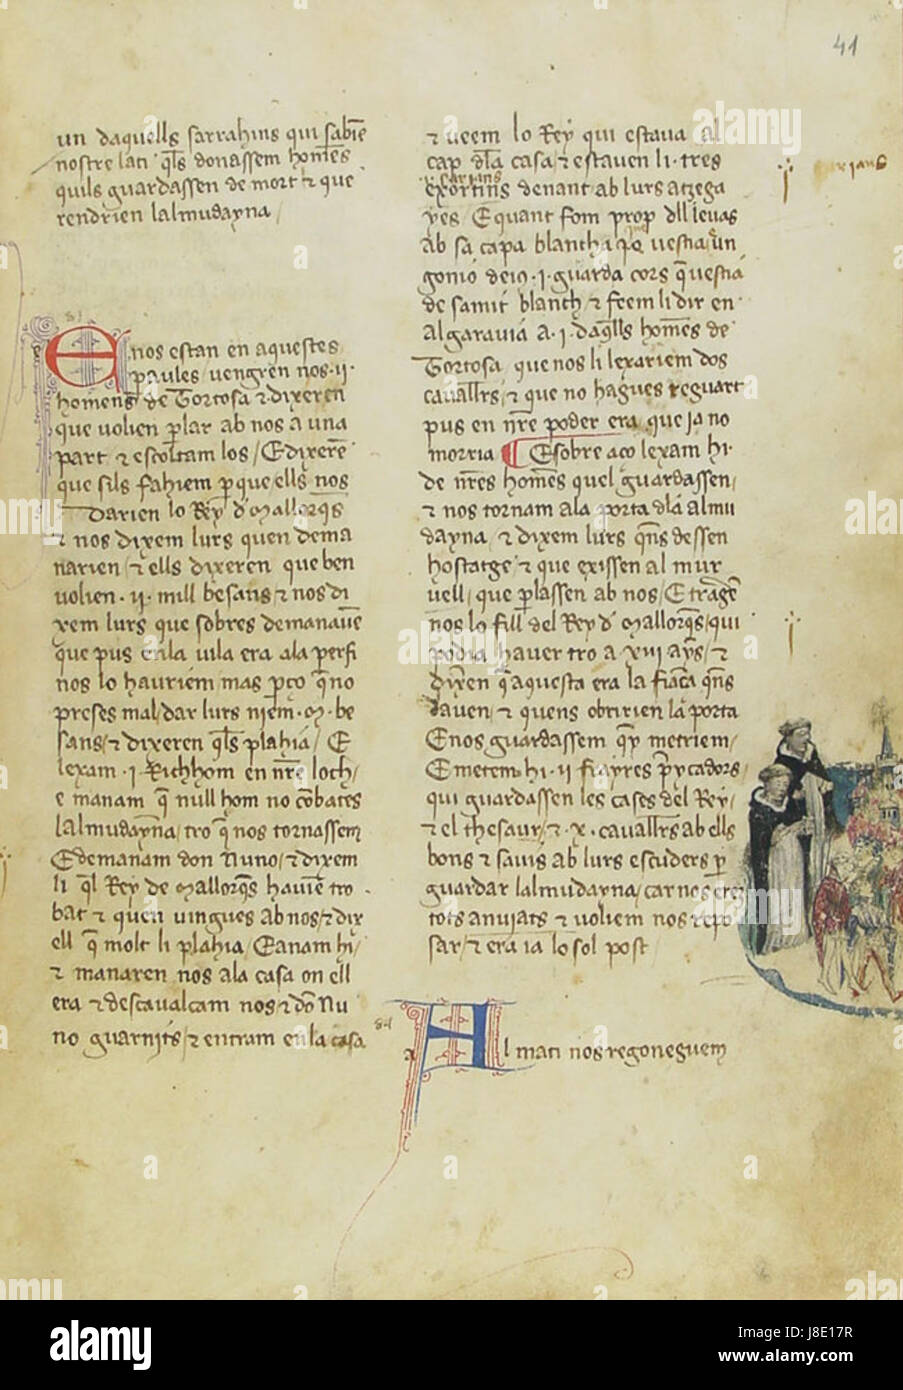 41
un daquells sarrahins qui sabiē
nostre lati q̄ls donassem homēs
quils guardassen de mort ⁊ que
rendrien lalmudayna /
81
Enos estan en aquestes
paules vengren nos .ii.
homens de Tortosa ⁊ dixeren
que volien ꝑlar ab nos a una
part ⁊ escoltam los / E dixerē
que sils fahiem ꝑ que ells nos
darien lo Rey d̓ Mallorq̄s
⁊ nos dixem lurs quen dema
narien / ⁊ ells dixeren que ben
volien .ii. mill besans / ⁊ nos di
xem lurs que sobres demanauē
que pus en la vila era a la perfi
nos lo hauriem mas ꝑ ço q̄ no
preses mal / dar lurs niem .M. be
sans / ⁊ dixeren q̄ls plahia / E
lexam .i. Richhom en nr̄e loch /
e manam q̄ null hom no cōbates
lalmudayna / tro q̄ nos tornassem
E demanam don Nuno / ⁊ dixem
li q̄l Rey de Mallorq̄s hauiē tro
bat ⁊ quen vingues ab nos / ⁊ dix
ell q̄ molt li plahia E anam hi /
⁊ manaren nos a la casa on ell
era ⁊ descaualcam nos ⁊ dō Nu
no guarnits / ⁊ entram en la casa
⁊ veem lo Rey qui estaua al
cap d̓la casa ⁊ estauen li .tres
exortins denant ab lurs atzega
yes / E quant fom prop dll leuas
ab sa capa blancha .i. que vestia / ⁊ un
gonio deios .i. guarda cors q̄ vestia
de samit blanch ⁊ feem li dir en
algarauia a .i. daq̄lls homēs de
Tortosa que nos li lexariem dos
cauallr̄s / ⁊ que no hagues reguart
pus en nr̄e poder era que ja no
morria ¶ E sobre aço lexam hi
de nr̄es homēs quel guardassen /
⁊ nos tornam a la porta d̓la almu
dayna / ⁊ dixem lurs q̄ns dessen
hostatge / ⁊ que exissen al mur
vell / que ꝑlassen ab nos / E tragē
nos lo fill del Rey d̓ Mallorq̄s / qui
podia hauer tro a xiii ays / ⁊
dixen q̄ aquesta era la fiāça q̄ns
dauen / ⁊ quens obririen la porta
E nos guardassem q̄ y metriem /
E metem hi .ii. frayres p̄ycadors
qui guardassen les cases del Rey /
⁊ el thesaur / ⁊ .x. cauallr̄s ab ells
bons ⁊ sauis ab lurs escuders ꝑ
guardar lalmudayna / car nos erē
tots anujats ⁊ voliem nos repo
sar / ⁊ era ia lo sol post
84
Al mati nos regoneguem
alamy
Image ID: J8E17R
www.alamy.com